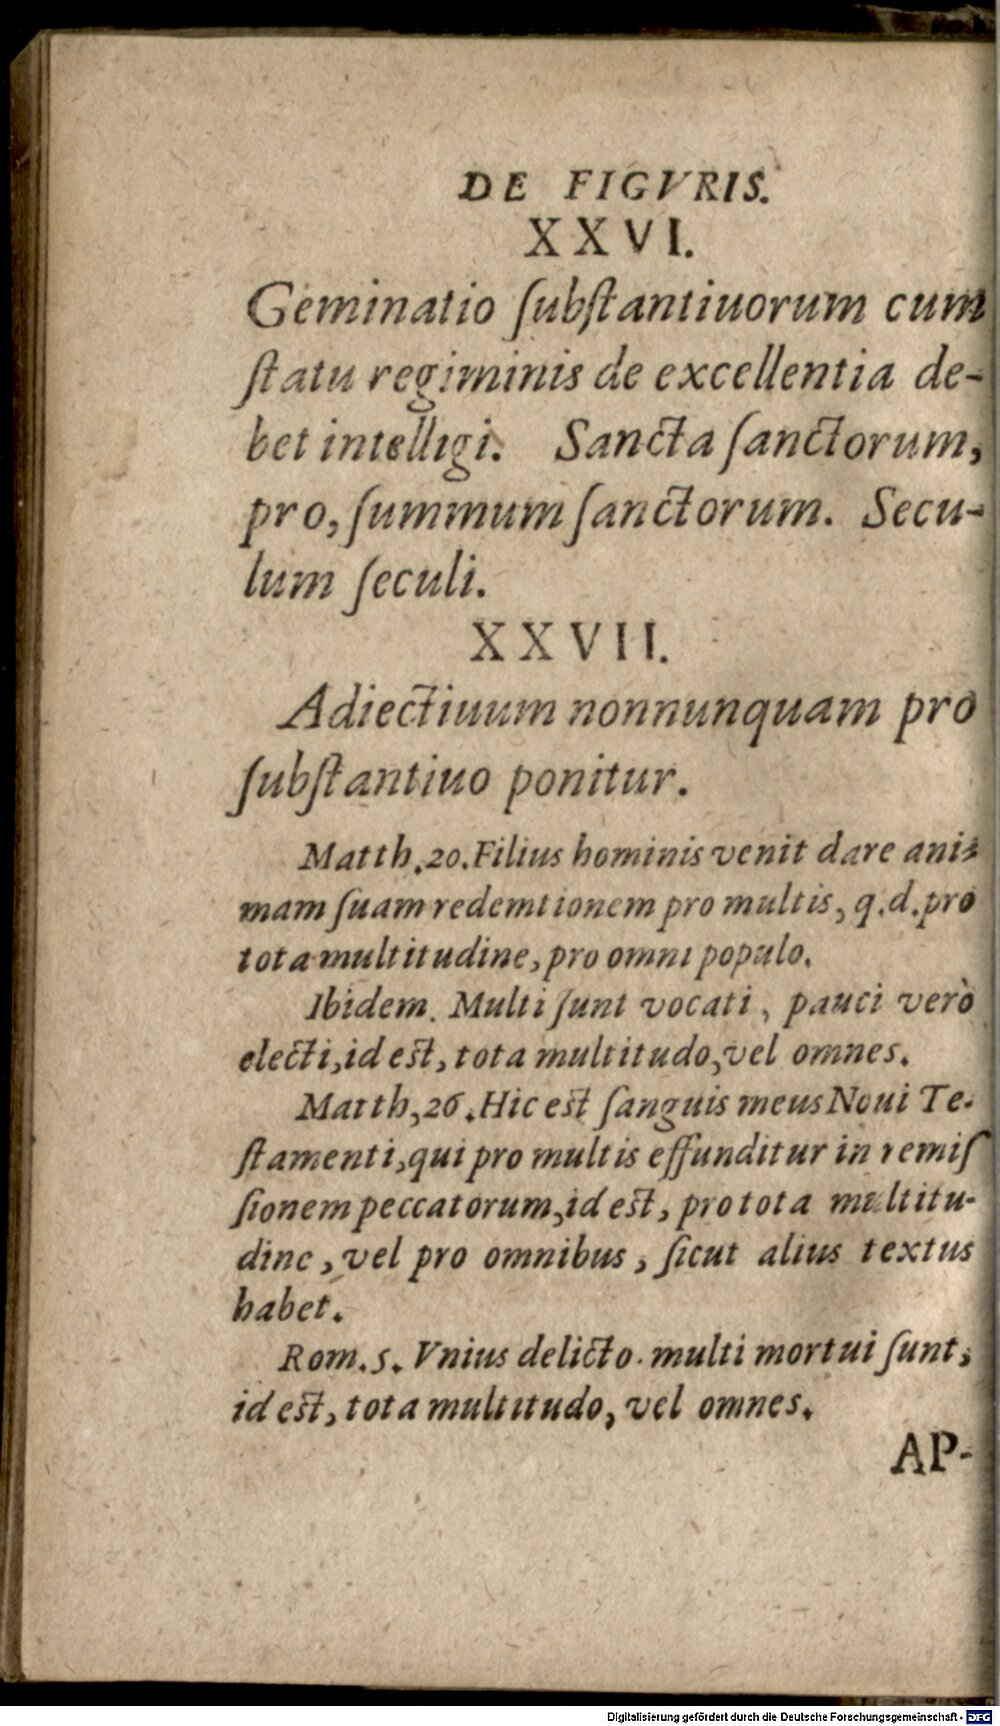 DE FIGVRIS.
XXVI.
Geminatio ſubſtantiuorum cum
ſtatu regiminis de excellentia de-
bet intelligi. Sancta ſanctorum,
pro, ſummum ſanctorum. Secu-
lum ſeculi.
XXVII.
Adiectiuum nonnunquam pro
ſubſtantiuo ponitur.
Matth. 20. Filius hominis venit dare ani-
mam ſuam redemtionem pro multis, q.d. pro
tota multitudine, pro omni populo.
Ibidem. Multi ſunt vocati, pauci verò
electi, id est, tota multitudo, vel omnes.
Matth, 26. Hic est ſanguis meus Noui Te-
ſtamenti, qui pro multis effunditur in remiſ
ſionem peccatorum, id est, pro tota multitu-
dine, vel pro omnibus, ſicut alius textus
habet.
Rom. 5. Vnius delicto multi mortui ſunt,
id est, tota multitudo, vel omnes.
AP-
Digitalisierung gefördert durch die Deutsche Forschungsgemeinschaft - DFG